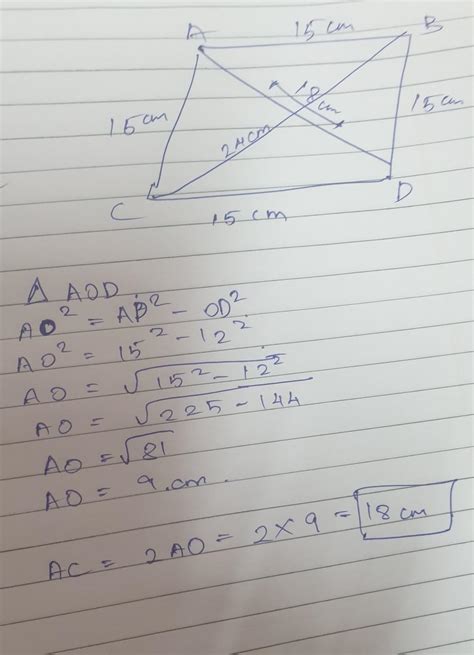 A 15 cm B
15 cm
18 cm
15 cm
24 cm
C 15 cm D
Δ AOD
AO² = AB² - OD²
AO² = 15² - 12²
AO = √15² - 12²
AO = √225 - 144
AO = √81
AO = 9 cm.
AC = 2AO = 2 × 9 = 18 cm